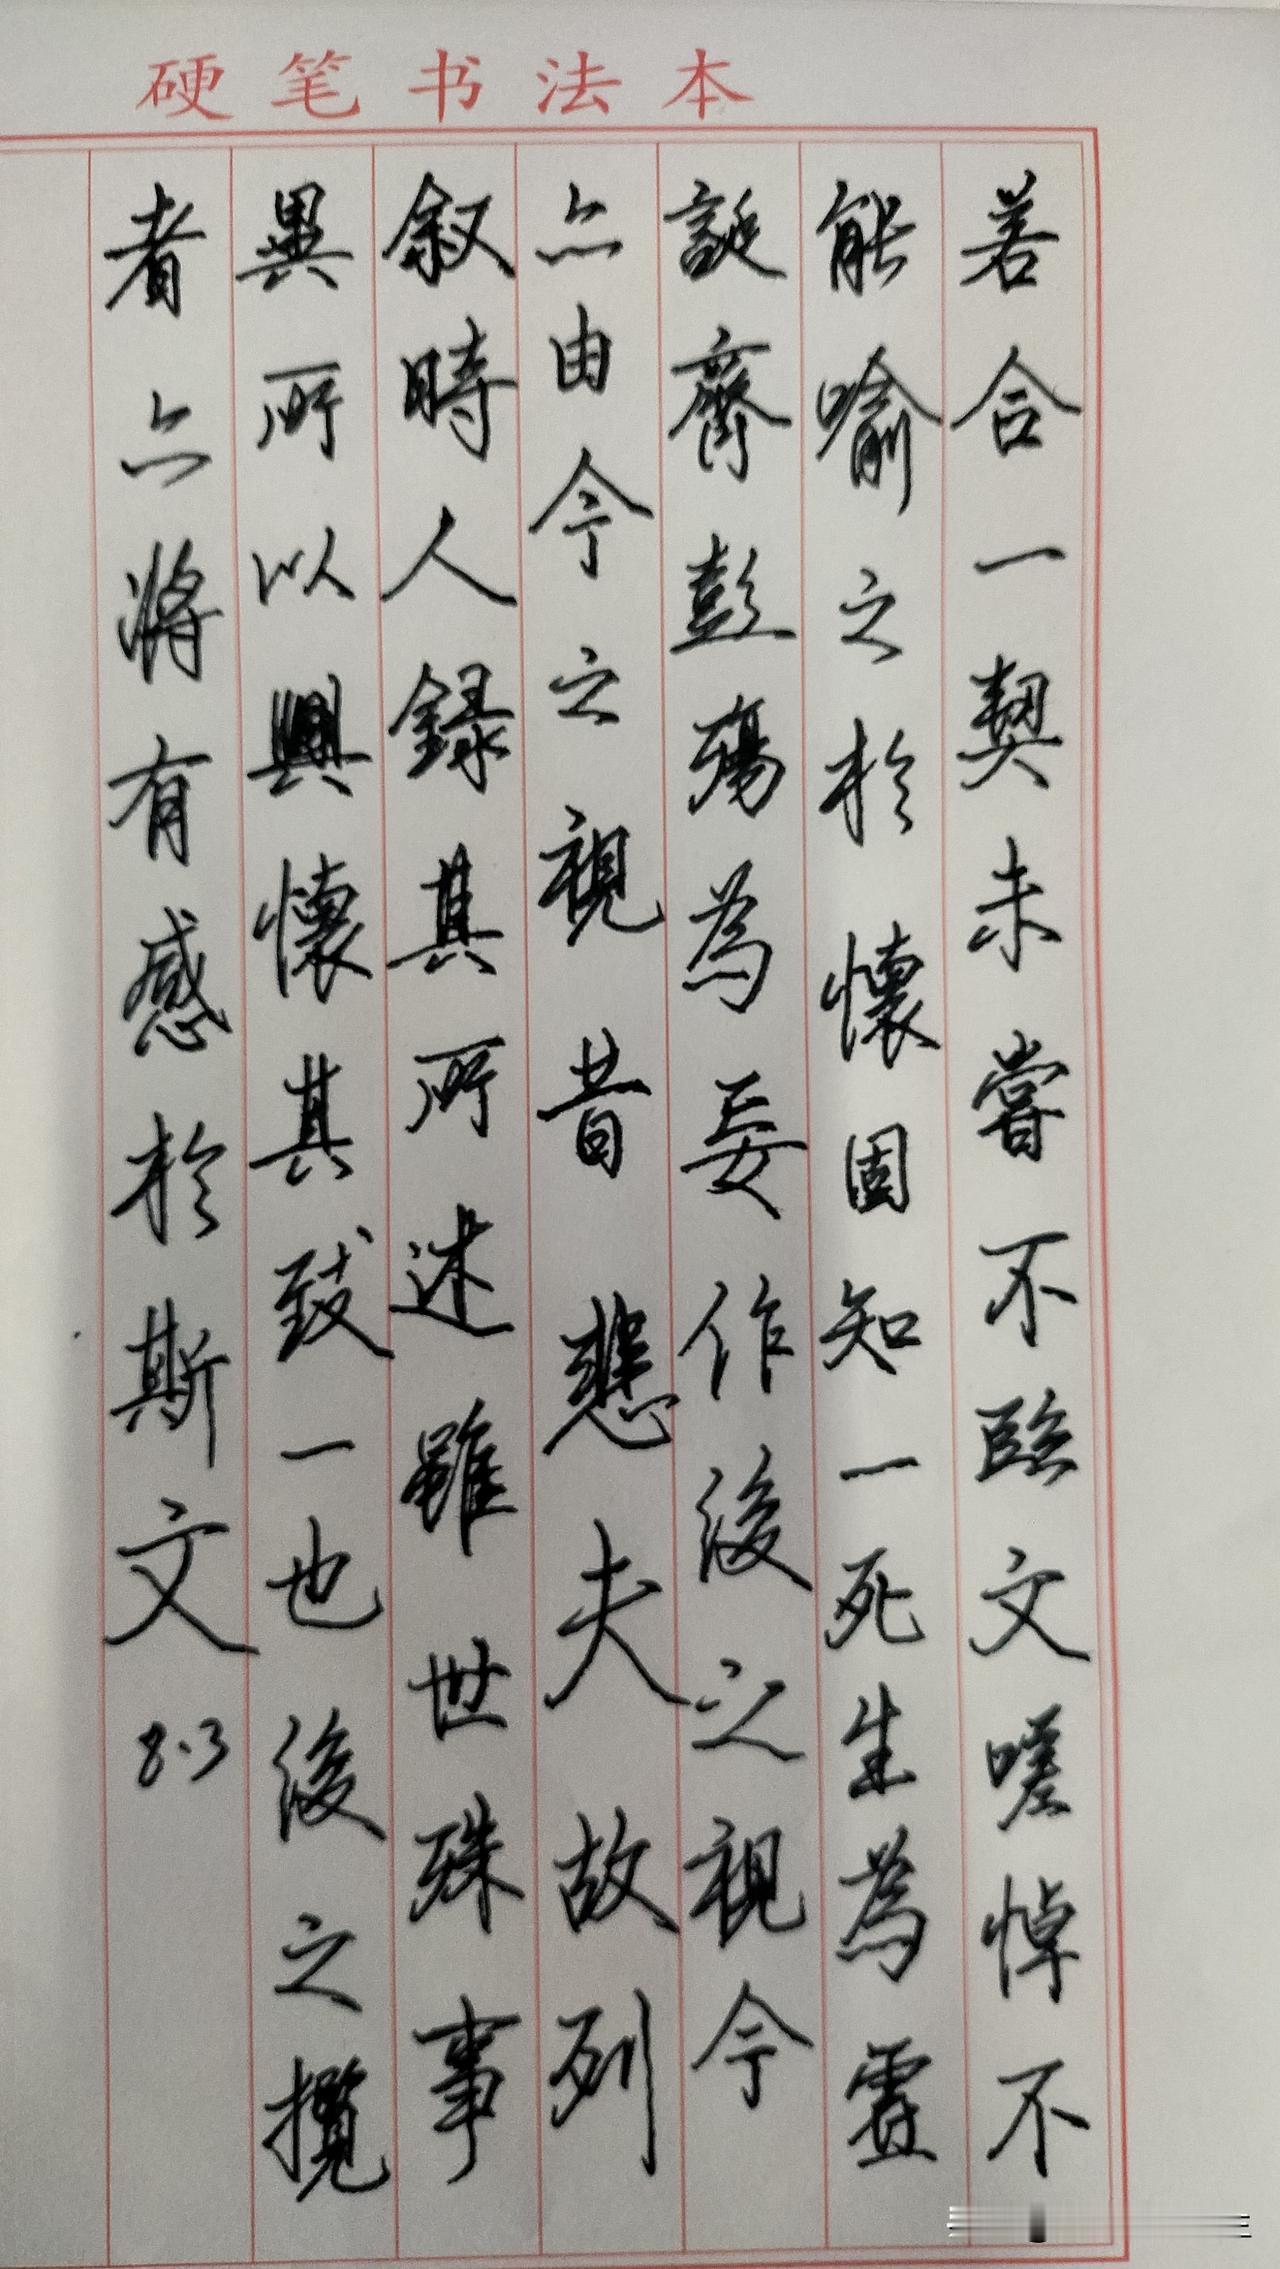 硬笔书法本
若合一契未嘗不臨文嗟悼不
能喻之於懷固知一死生為虛
誕齊彭殤為妄作後之視今
亦由今之視昔悲夫故列
叙時人録其所述雖世殊事
異所以興懷其致一也後之攬
者亦將有感於斯文
8.3